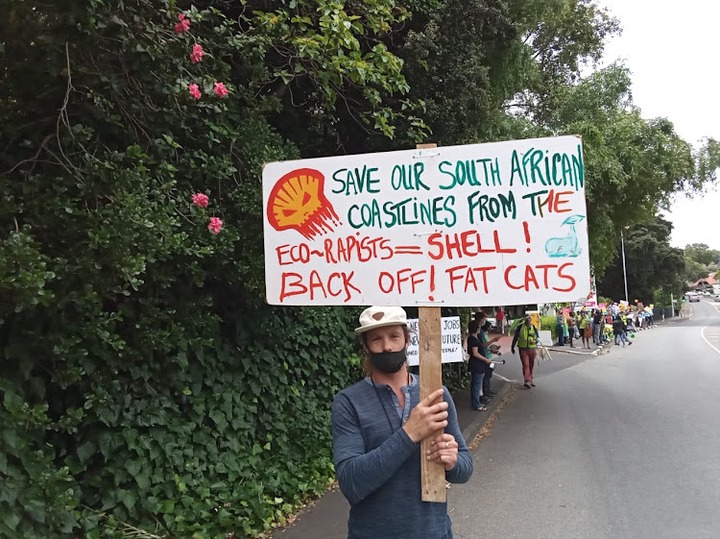 SAVE OUR SOUTH AFRICAN
COASTLINES FROM THE
ECO~RAPISTS = SHELL!
BACK OFF! FAT CATS
JOBS
FUTURE